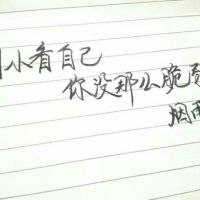 小看自己
你没那么脆
烟雨